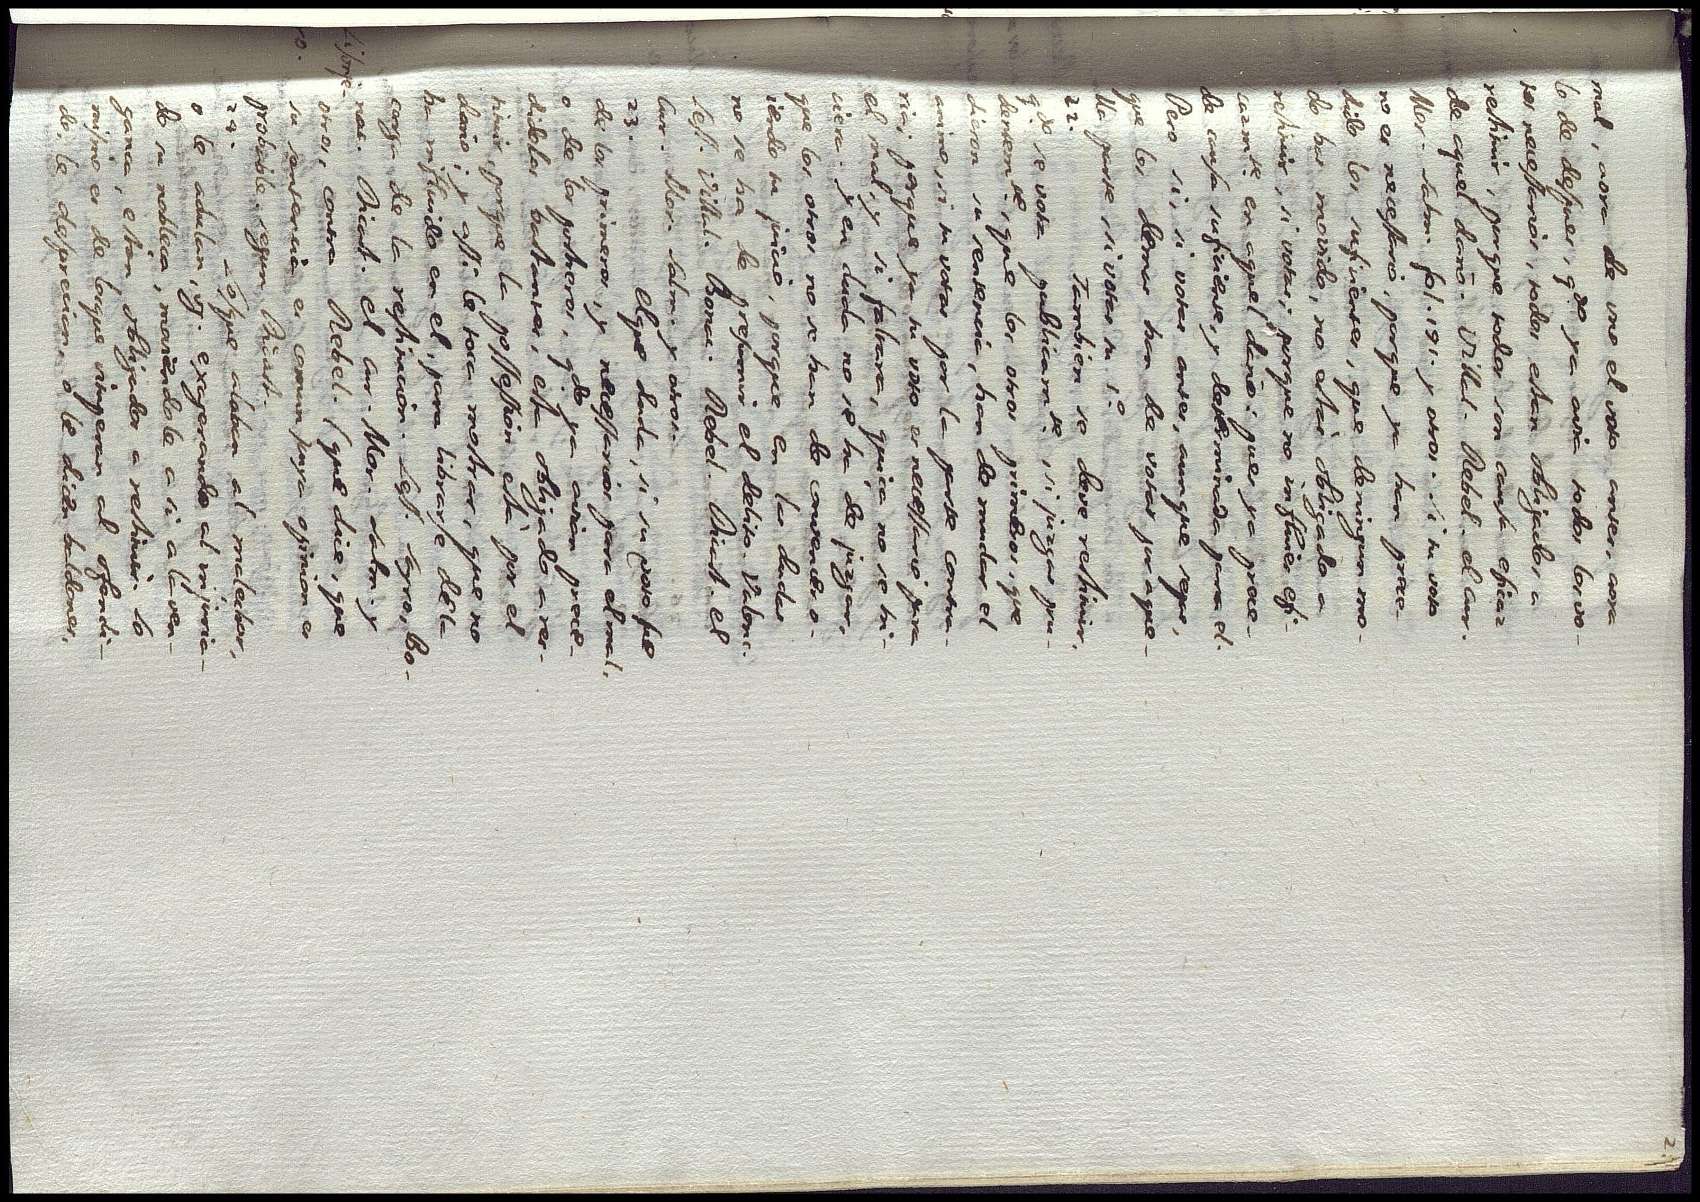 mal, aora dè uno el voto antes, aora
lo dè despues, q.do ya avia todos los vo-
tos necessarios, todos estan obligados a
restituir, porque todos son causa eficaz
de aquel daño. Villal. Rebel. el cur.
Mor. Salm. fol. 191. y otros. Si tu voto
no es necessario, porque ya han prece-
dido los suficientes, que de ningun mo-
do has movido, no estas obligado a
restituir, si votas, porque no influies efi-
cazm.te en aquel daño: pues ya prece-
de causa suficiente, y determinada para el.
Pero si, si votas antes, aunque sepas,
que los demas han de votar por aque-
lla parte si votas tu 1.o
22. Tambien se deve restituir,
q.do se vota publicam.te si juzgas pru-
dentem.te, que los otros primeros, que
dieron su sentencia, han de mudar el
animo, si tu votas por la parte contra-
ria; porque ya tu voto es necessario para
el mal, y si faltara, quiza no se hi-
ciera. y en duda no se ha de juzgar,
que los otros no se han de convencer o-
iendo tu juicio, porque en las dudas
no se ha de presumir el delito. Valenc.
Less. Villal. Bonac. Rebel. Dicast. el
Cur. Mor. Salm. y otros.
23. El que duda, si su voto fue
de los primeros, y necessarios para el mal,
o de los postreros, q.do ya avian prece-
didolos bastantes, està obligado a res-
tituir, porque la possession està por el
daño; y assi le toca mostrar, que no
ha influido en el, para librarse dela
carga de la restitucion. Less. Lugo, Bo-
nac. Dicast. el cur. Mor. Salm. y
otros, contra Rebel. (que dice, que
su sentencia es comun) cuya opinion es
probable, segun Dicast.
Lisonje-
ro.
24. Los que alaban al malechor,
o le adulan, vg. exagerando al injuria-
do su nobleza, moviendole a si a la ven-
ganza, estan obligados a restituir. lo
mismo es de los que vituperan al ofendi-
do le desprecian, o le dicen baldones,